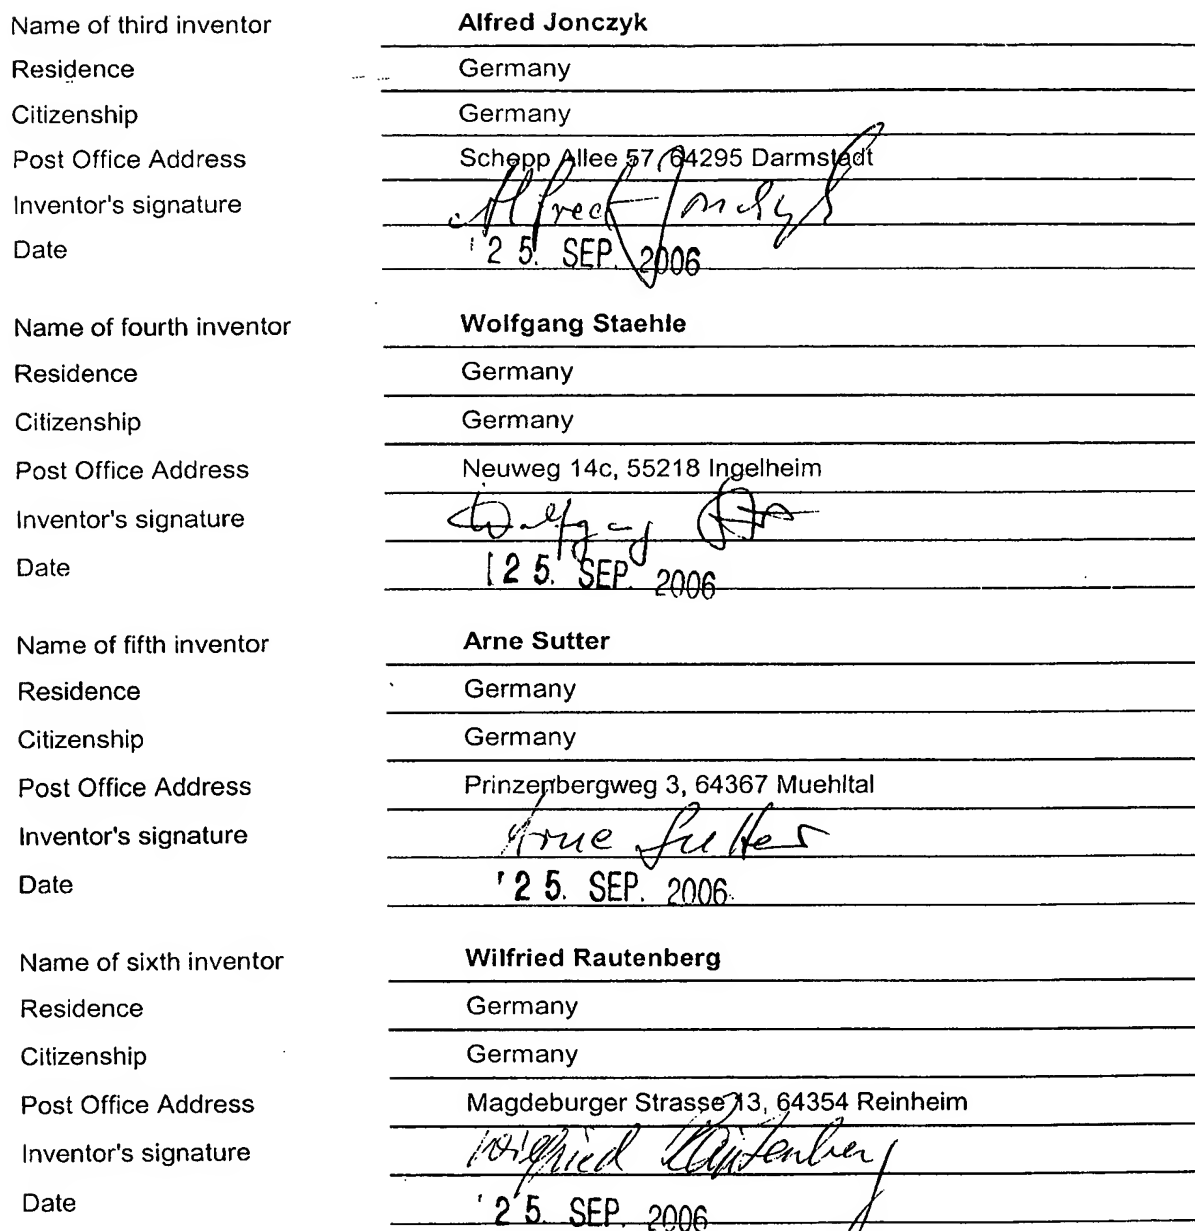 Name of third inventor Alfred Jonczyk
Residence Germany
Citizenship Germany
Post Office Address Schepp Allee 57, 64295 Darmstadt
Inventor's signature Alfred Jonczyk
Date 25. SEP. 2006
Name of fourth inventor Wolfgang Staehle
Residence Germany
Citizenship Germany
Post Office Address Neuweg 14c, 55218 Ingelheim
Inventor's signature Wolfgang
Date 25. SEP. 2006
Name of fifth inventor Arne Sutter
Residence Germany
Citizenship Germany
Post Office Address Prinzenbergweg 3, 64367 Muehltal
Inventor's signature Arne Sutter
Date 25. SEP. 2006
Name of sixth inventor Wilfried Rautenberg
Residence Germany
Citizenship Germany
Post Office Address Magdeburger Strasse 13, 64354 Reinheim
Inventor's signature Wilfried Rautenberg
Date 25. SEP. 2006